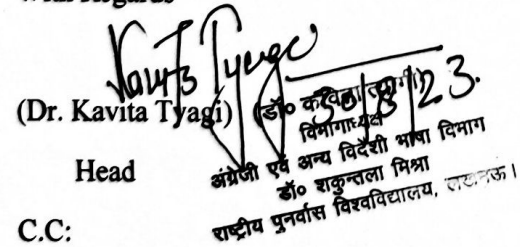 With Regards
Kavita Tyagi
30/8/23.
(Dr. Kavita Tyagi)
(डॉ० कविता त्यागी)
विभागाध्यक्ष
अंग्रेजी एवं अन्य विदेशी भाषा विभाग
Head
डॉ० शकुन्तला मिश्रा
राष्ट्रीय पुनर्वास विश्वविद्यालय, लखनऊ।
C.C: